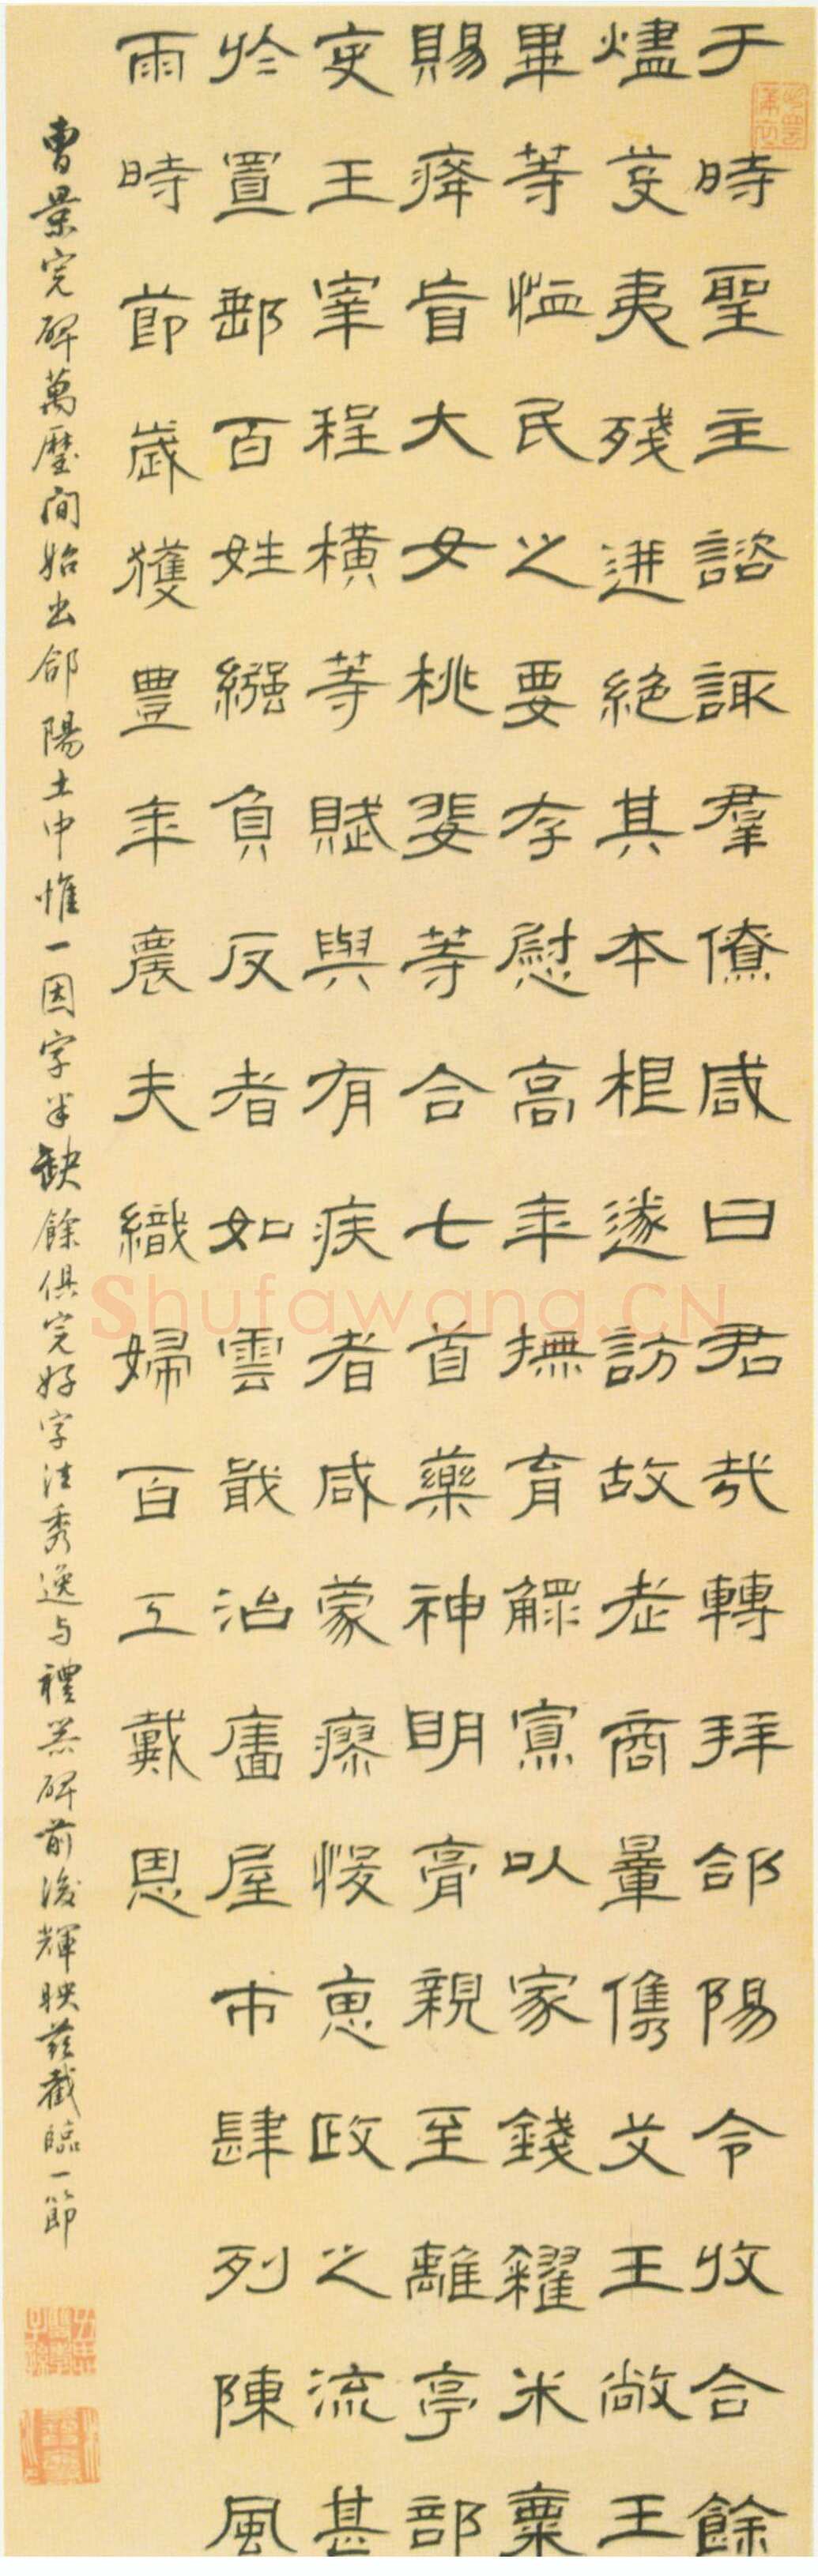 于時聖主諮諏羣僚咸曰君哉轉拜郃陽令收合餘
燼芟夷殘迸絕其本根遂訪故老商暈儁艾王敞王
畢等恤民之要存慰高年撫育鰥寡以家錢糴米粟
賜癃盲大女桃婓等合七首藥神明膏親至離亭部
吏王宰程橫等賦與有疾者咸蒙瘳悛惠政之流甚
於置郵百姓繈負反者如雲戢治廧屋市肆列陳風
雨時節歲獲豐年農夫織婦百工戴恩
曹景完碑萬歷间始出郃陽土中惟一因字半缺餘俱完好字法秀逸与禮器碑前後輝映兹截臨一節
Shufawang.CN